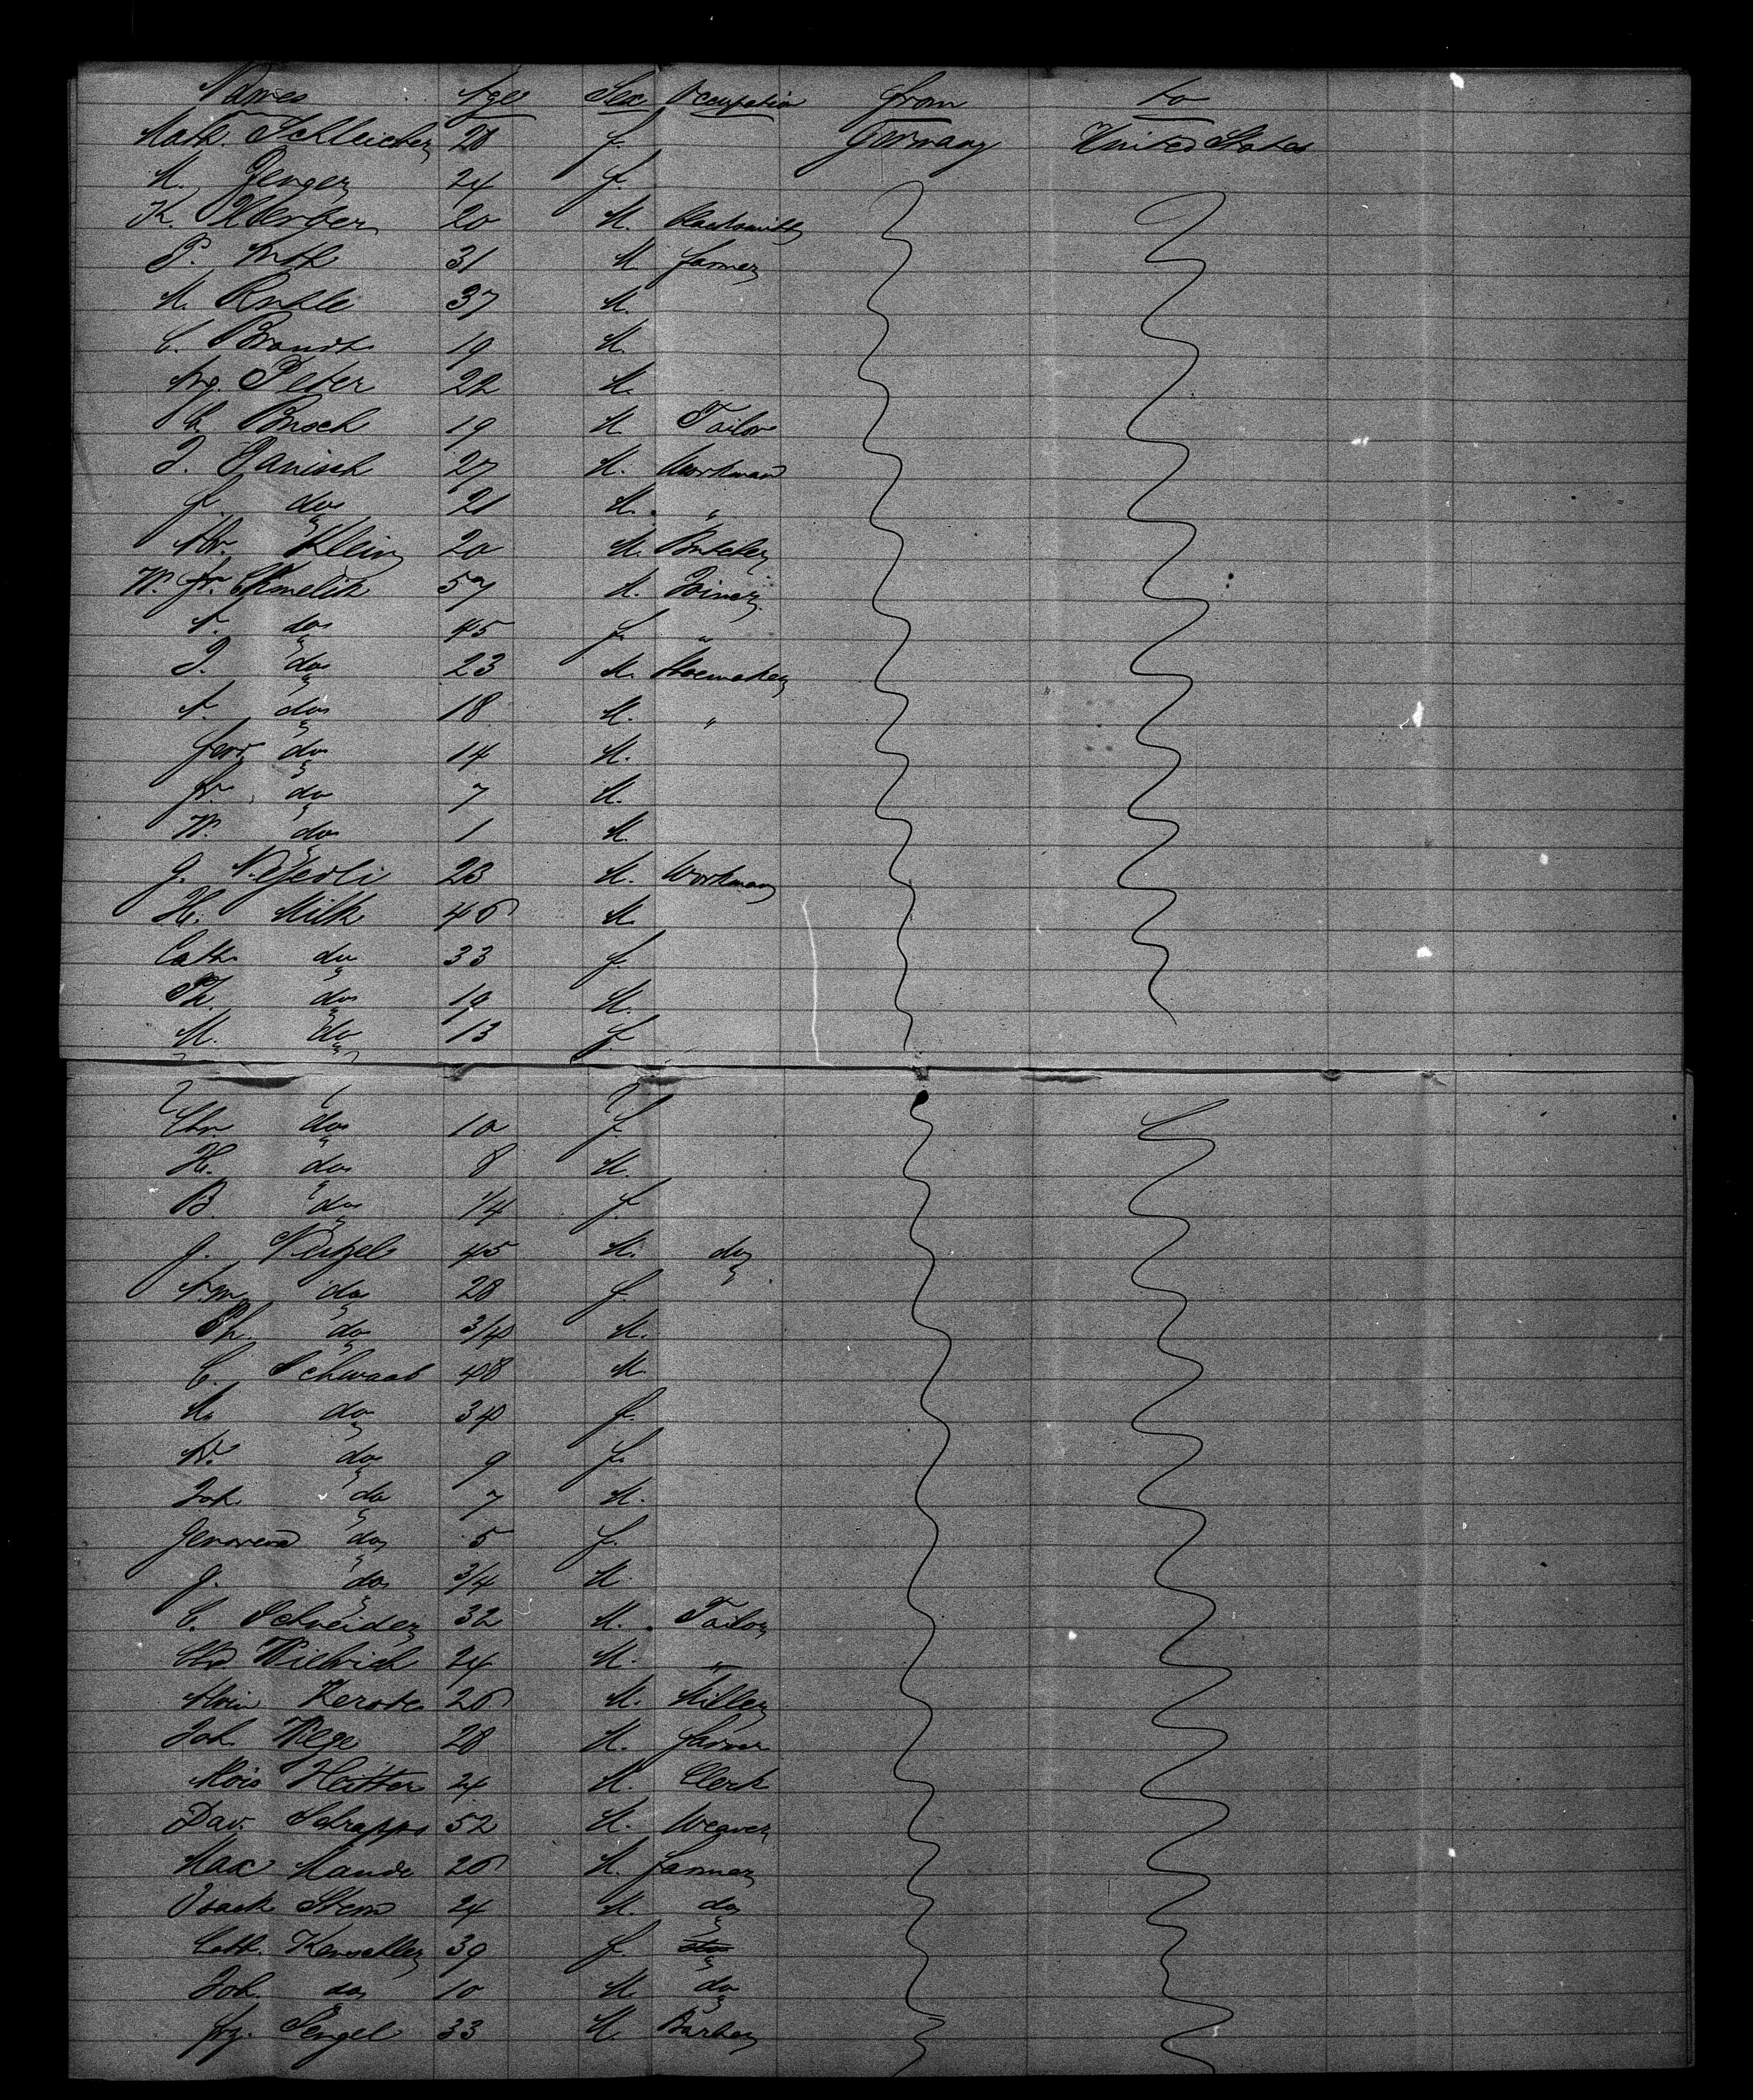 Names Age Sex Occupation from to
Math. Schleicher 28 f. Germany United States
M. Zenger 24 f.
K. 20 M. Blacksmith
P. 31 M. farmer
M. Ruhle 37 M.
C. Brandt 19 M.
Aug. Peter 22 M.
Busch 19 M. Tailor
J. Janisch 27 M. Workman
f. do 21 M. "
Abr. Klein 20 M. Butcher
W. Fr. Chmelik 57 M. Joiner
A. do 45 f. "
J. do 23 M. Shoemaker
A. do 18 M. "
Ferd. do 14 M.
Fr. do 7 M.
W. do 1 M.
G. 23 M. Workman
H. Milk 46 M.
Cath. do 33 f.
Ph. do 19 M.
M. do 13 f.
Chr. do 10 f.
H. do 8 M.
B. do 1/4 f.
J. 45 M. do
do 28 f.
Ph. do 3/4 M.
C. Schwaab 48 M.
do 34 f.
do 9 f.
Joh. do 7 M.
Genoveva do 5 f.
J. do 3/4 M.
C. Schneider 32 M. Tailor
24 M. "
Alvin Kerste 26 M. Miller
Joh. Wege 28 M. farmer
Alois 24 M. Clerk
Dav. Schrapps 52 M. Weaver
Max Mande 26 M. farmer
Isaak Stern 24 M. do
Cath. 39 f. do
Joh. do 10 M. do
Frz. Sengel 33 M. Barber